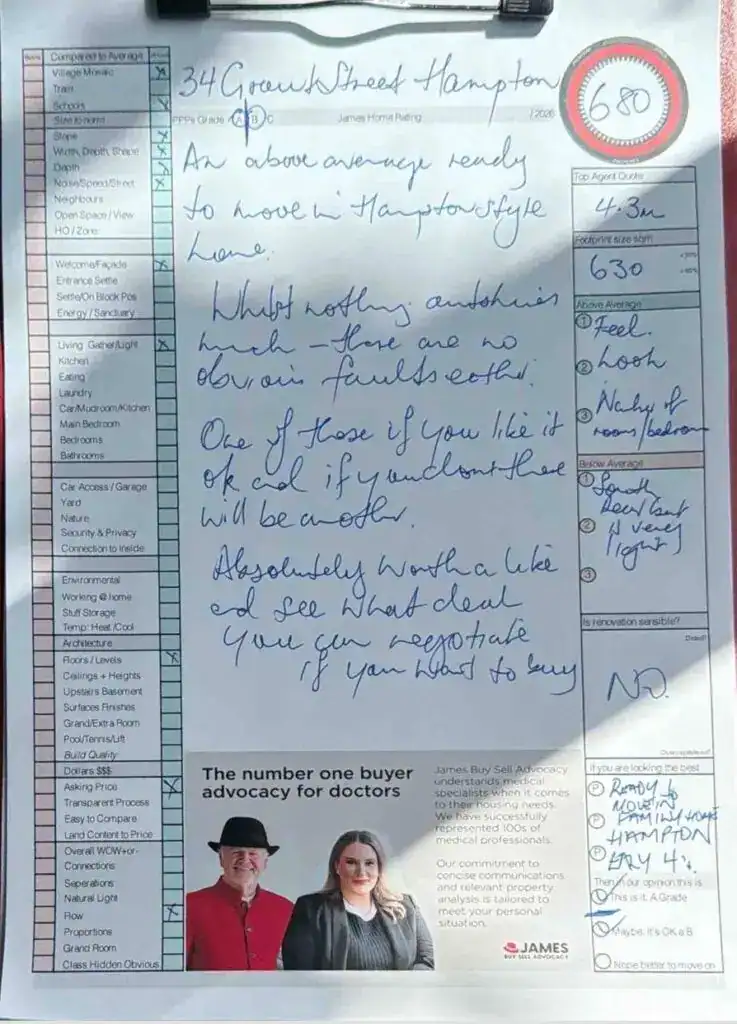 34 Grant Street Hampton
680
PPPs Grade A B C
James Home Rating
/2026
An above average ready
to move in Hampton style
home.
Whilst nothing
much – there are no
obvious faults either.
One of those if you like it
ok and if you dont there
will be another.
Absolutely worth a like
and see what deal
you can negotiate
if you want to buy
Compared to Average
Village Mosaic
Train
Schools
Size to norm
Slope
Width, Depth, Shape
Depth
Noise/Speed/Street
Neighbours
Open Space / View
HO / Zone
Welcome/Façade
Entrance Settle
Settle/On Block Pos
Energy / Sanctuary
Living Gather/Light
Kitchen
Eating
Laundry
Car/Mudroom/Kitchen
Main Bedroom
Bedrooms
Bathrooms
Car Access / Garage
Yard
Nature
Security & Privacy
Connection to Inside
Environmental
Working @ home
Stuff Storage
Temp: Heat /Cool
Architecture
Floors / Levels
Ceilings + Heights
Upstairs Basement
Surfaces Finishes
Grand/Extra Room
Pool/Tennis/Lift
Build Quality
Dollars $$$
Asking Price
Transparent Process
Easy to Compare
Land Content to Price
Overall WOW+or-
Connections
Seperations
Natural Light
Flow
Proportions
Grand Room
Class Hidden Obvious
Top Agent Quote
4.3m
Footprint size sqm
630
Above Average
1 Feel.
2 Look
3 Number of
rooms/bedroom
Below Average
1 South
Rear (but
2 is very
light)
3
Is renovation sensible?
NO.
If you are looking the best
P READY to
MOVE IN
P FAMILY HOME
HAMPTON
P
Then in our opinion this is
This is it. A Grade
Maybe. It's OK a B
Nope better to move on
The number one buyer
advocacy for doctors
James Buy Sell Advocacy
understands medical
specialists when it comes
to their housing needs.
We have successfully
represented 100s of
medical professionals.
Our commitment to
concise communications
and relevant property
analysis is tailored to
meet your personal
situation.
JAMES
BUY SELL ADVOCACY